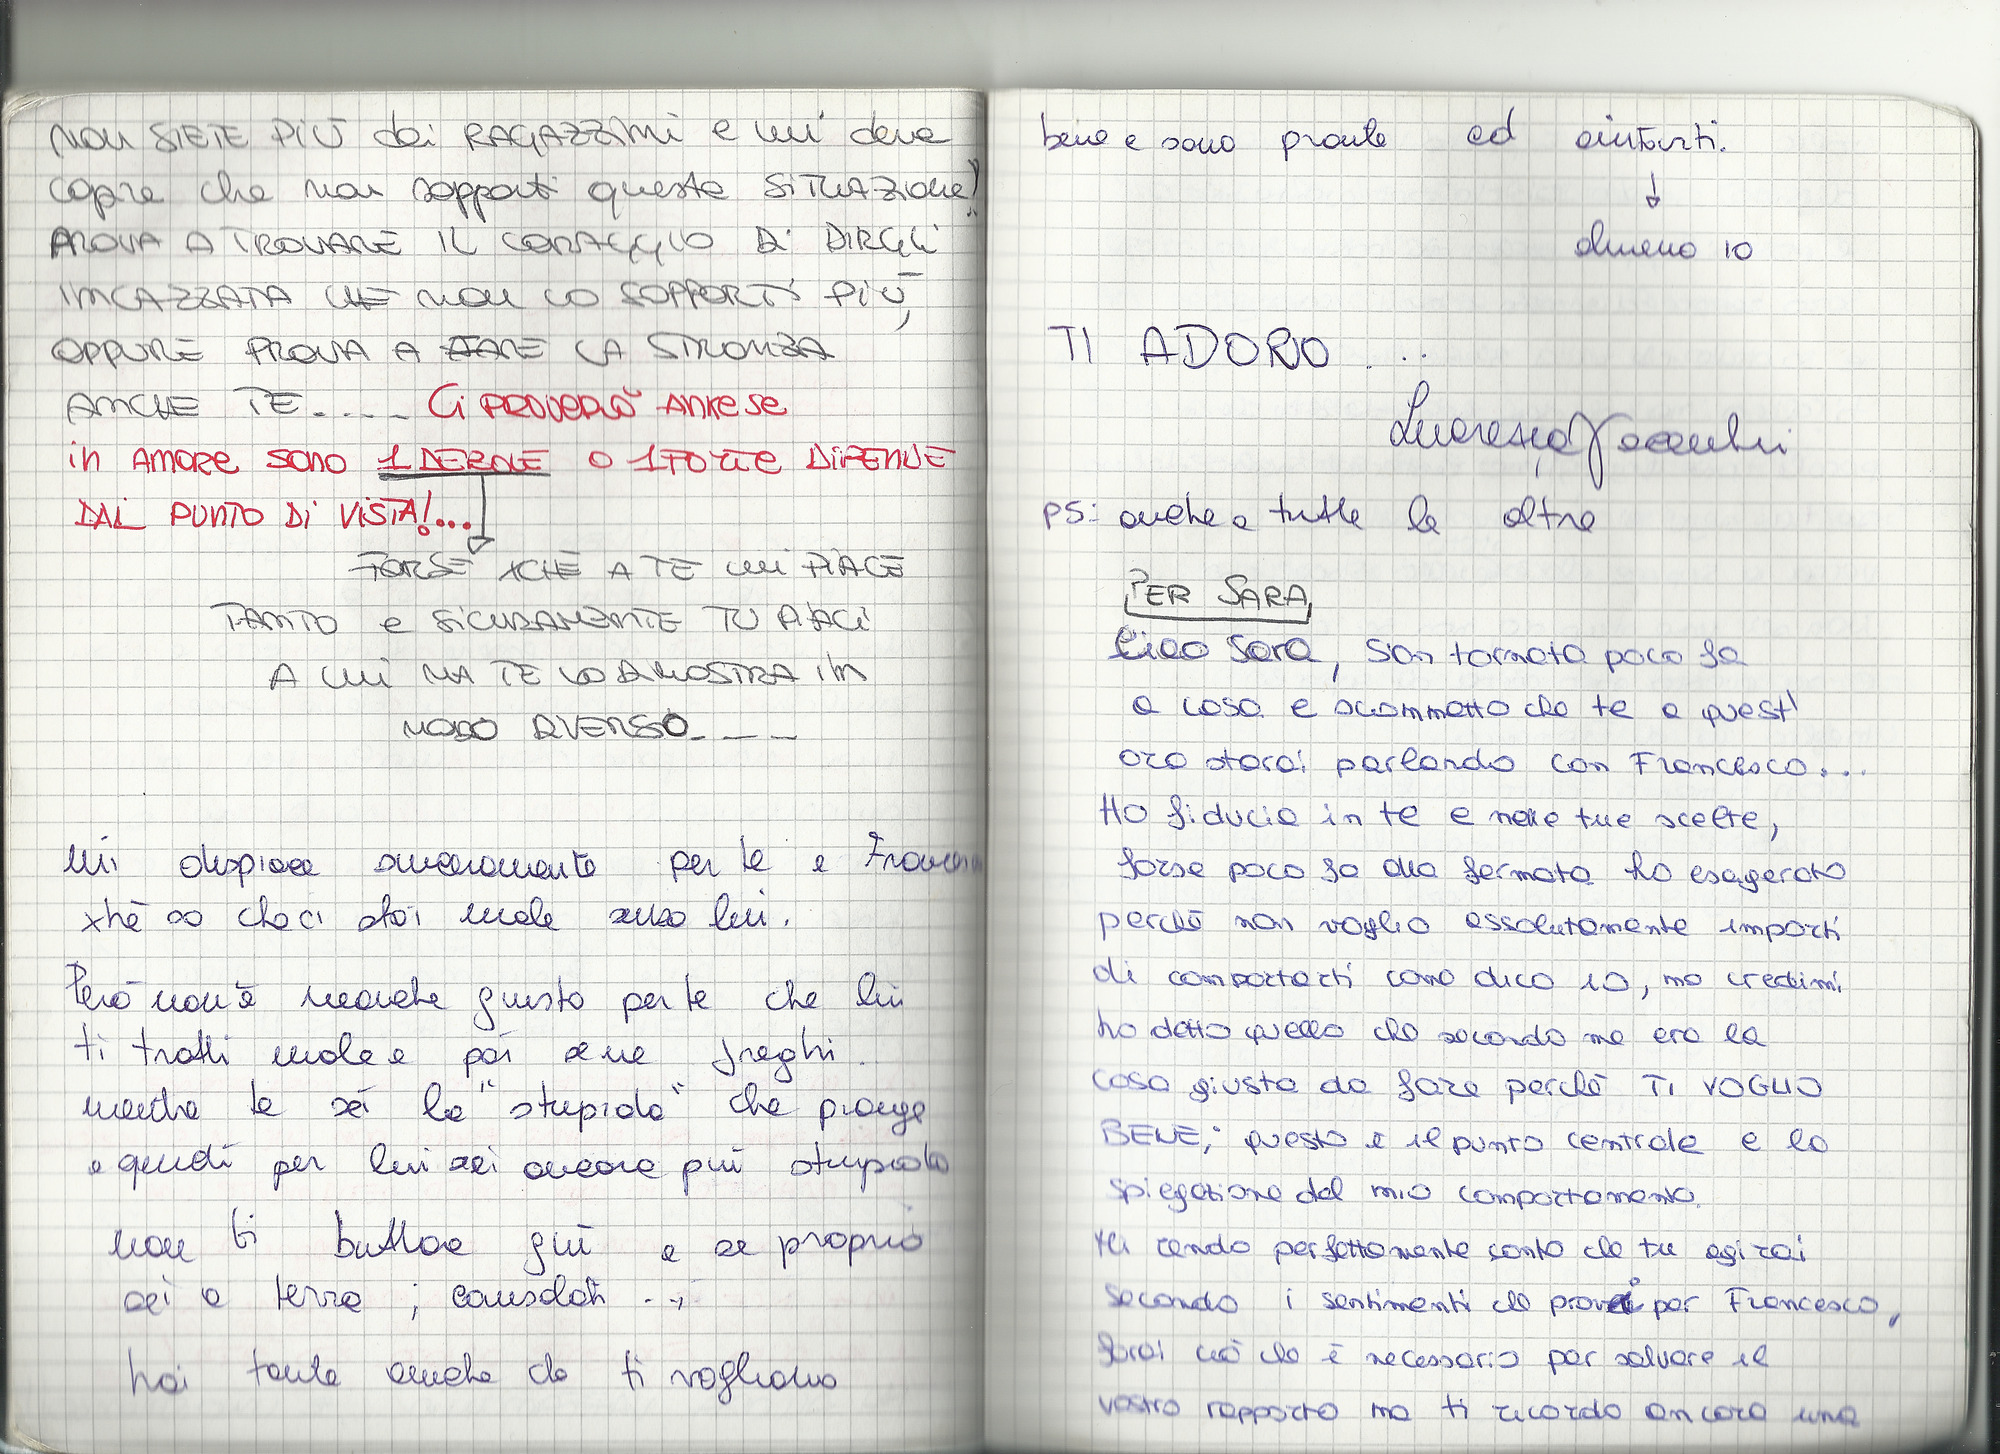 NON SIETE PIÙ dei RAGAZZINI e lui deve
capire che non sopporti questa SITUAZIONE!
PROVA A TROVARE IL CORAGGIO DI DIRGLI
INCAZZATA CHE NON LO SOPPORTI PIÙ,
OPPURE PROVA A FARE LA STRONZA
ANCHE TE.... Ci PROVERÒ ANKE SE
in AMORE SONO 1 DEBOLE O 1 FORTE DIPENDE
DAL PUNTO DI VISTA!...
FORSE XCHÈ A TE LUI PIACE
TANTO e SICURAMENTE TU PIACI
A LUI MA TE LO DIMOSTRA IN
MODO DIVERSO....
Mi dispiace sinceramente per te e Francesco
xhè so che ci stai male senza lui.
Però non è neanche giusto per te che lui
ti tratti male e poi se ne freghi.
mentre te sei la "stupida" che piange
e quindi per lui sei ancora più stupida
non ti buttare giù e se proprio
sei a terra; consolati..,
hai tante amiche che ti vogliono
bene e sono pronte ad aiutarti.
almeno io
TI ADORO...
Lucrezia
ps: anche a tutte le altre
PER SARA
Ciao Sara, son tornata poco fa
a casa e scommetto che te a quest'
ora starai parlando con Francesco...
Ho fiducia in te e nelle tue scelte,
forse poco fa alla fermata ho esagerato
perchè non voglio assolutamente importi
di comportarti come dico io, ma credimi
ho detto quello che secondo me era la
cosa giusta da fare perchè TI VOGLIO
BENE; questo è il punto centrale e la
spiegazione del mio comportamento.
Mi rendo perfettamente conto che tu agirai
secondo i sentimenti che provi per Francesco,
farai ciò che è necessario per salvare il
vostro rapporto ma ti ricordo ancora una